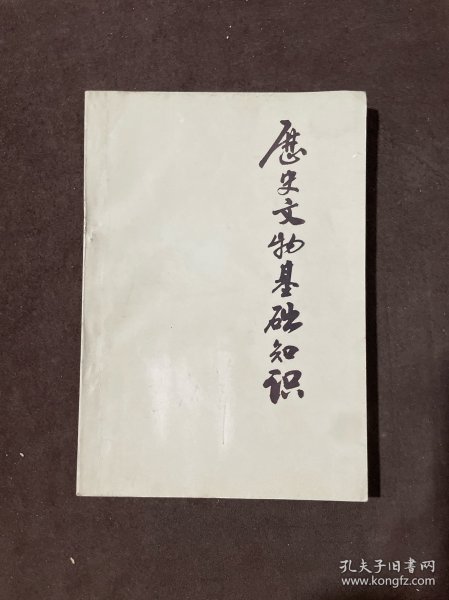 歷史文物基础知识
孔夫子旧书网
www.kongfz.com